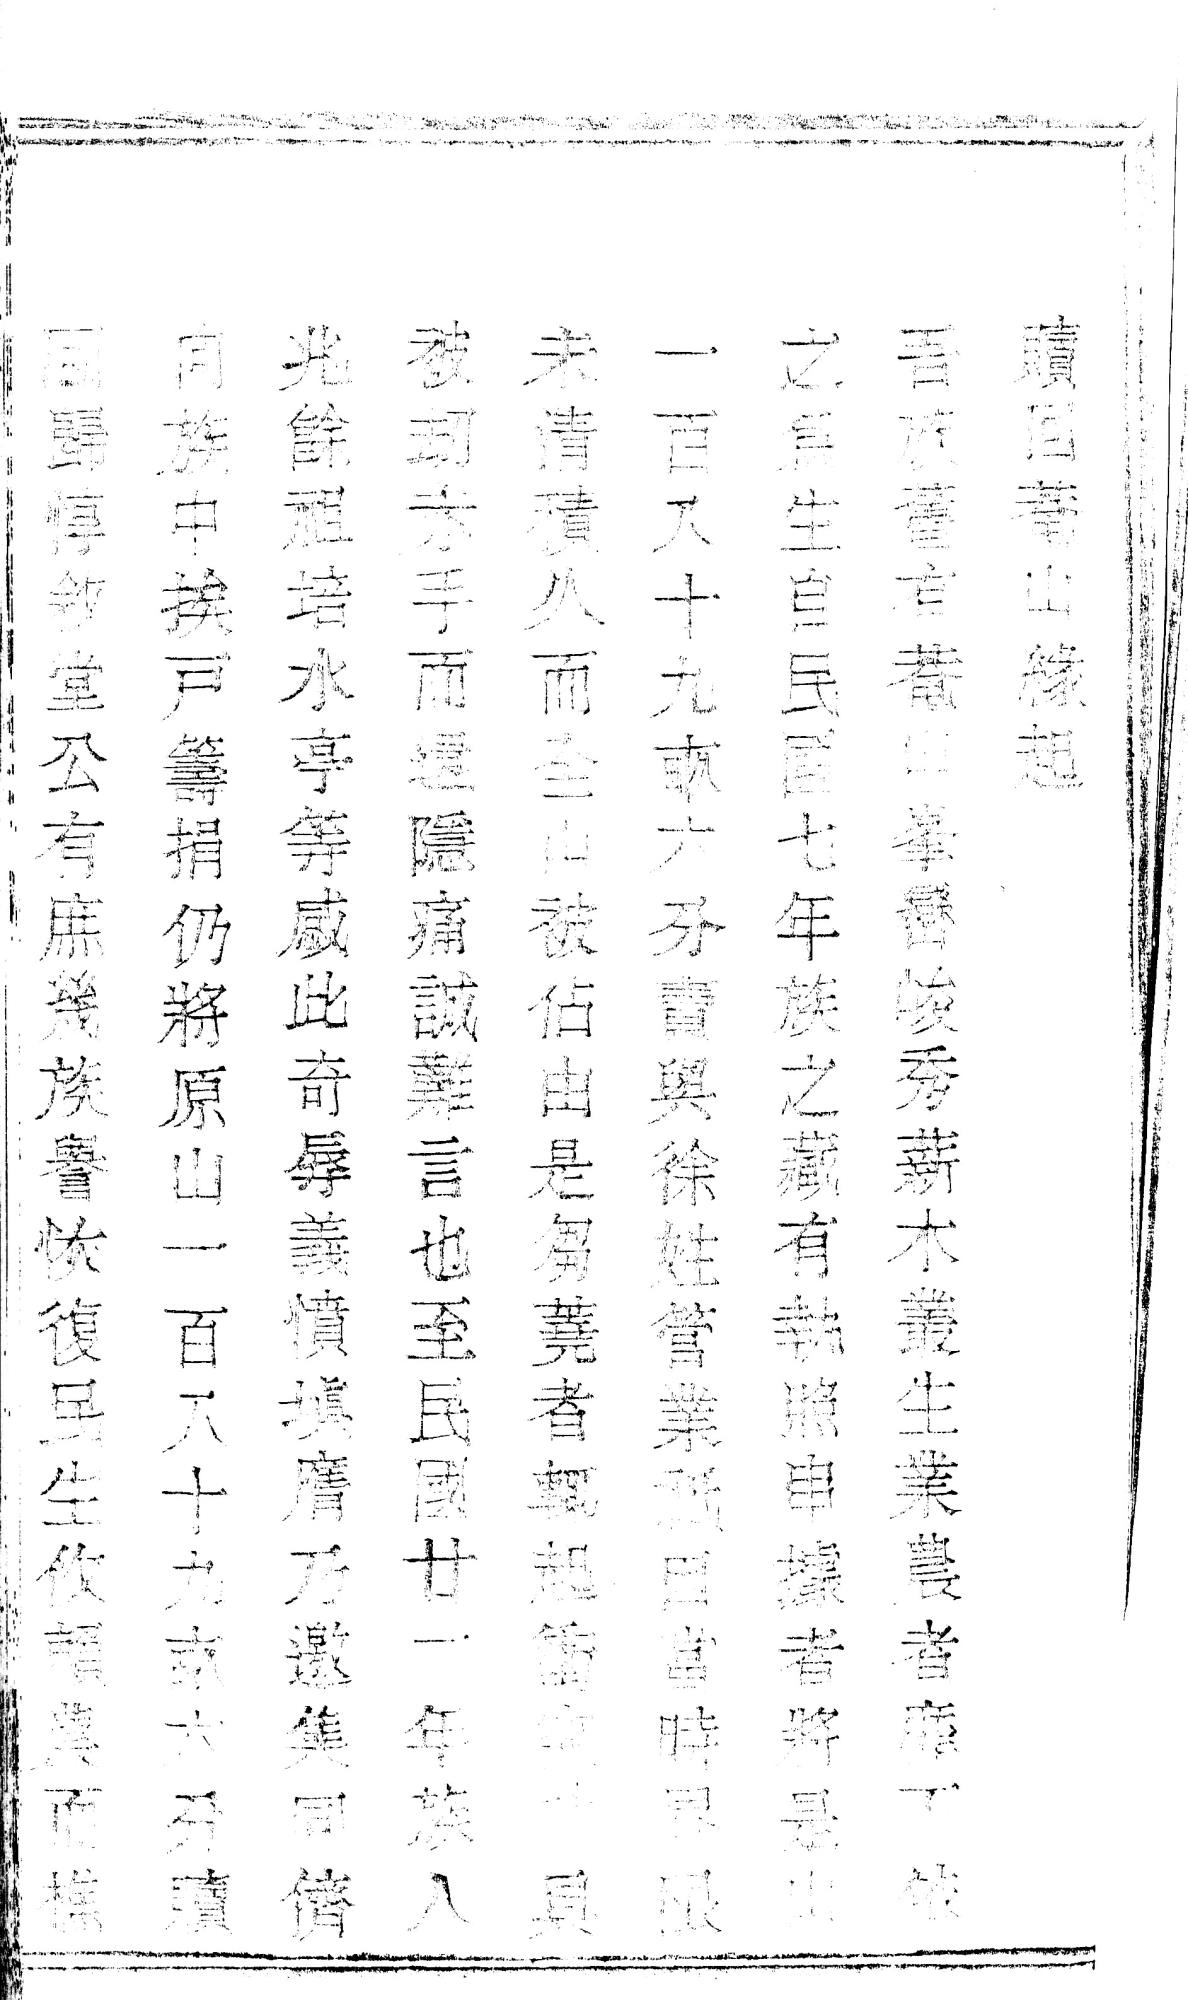 贖回菴山緣起
吾族舊有菴山峯巒峻秀薪木叢生業農者靡不依
之為生自民國七年族之藏有執照串據者將是山
一百八十九畝六分賣與徐姓管業 田當時界限
未清積久而全山被佔由是芻蕘者輒起衝突 員
被刦赤手而還隱痛誠難言也至民國廿一年族人
兆餘祖培水亭等感此奇辱義憤填膺乃邀集同儕
向族中挨戶籌捐仍將原山一百八十九畝六分贖
回歸惇敘堂公有庶幾族譽恢復民生攸賴冀而